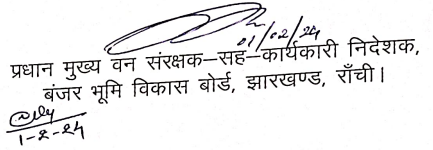 01/02/24
प्रधान मुख्य वन संरक्षक–सह–कार्यकारी निदेशक,
बंजर भूमि विकास बोर्ड, झारखण्ड, राँची।
1-2-24